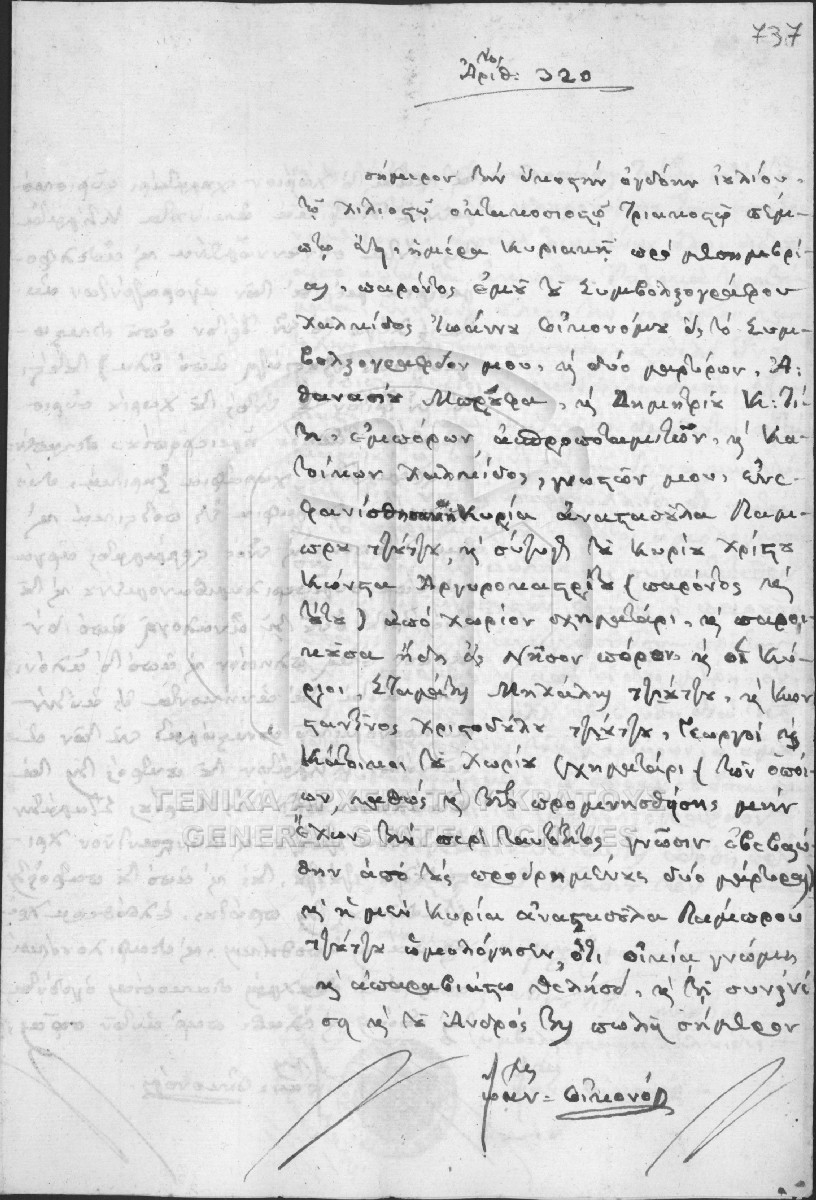 737
Ἀριθ: 320
σήμερον τὴν εἰκοστὴν ὀγδόην ἰουλίου,
τοῦ χιλιοστοῦ ὀκτακοσιοστοῦ τριακοστοῦ πέμ-
πτου ἔτους, ἡμέρα κυριακῇ πρὸ μεσημβρί-
ας, παρόντος ἐμοῦ τοῦ Συμβολαιογράφου
Χαλκίδος Ἰωάννου Οἰκονόμου εἰς τὸ Συμ-
βολαιογραφεῖον μου, καὶ δύο μαρτύρων, Ἀ:
θανασίου, καὶ Δημητρίου
ἐμπόρων, καὶ κα-
τοίκων Χαλκίδος, γνωστῶν μου, ἐνε-
φανίσθησαν ἡ Κυρία ἀναστασοῦλα Λαμ-
πρου, καὶ σύζυγος τοῦ Κυρίου Χρίστου
Κώνστα Ἀργυροκαστρίτου (παρόντος καὶ
τούτου) ἀπὸ χωρίον σχηματάρι, καὶ παροι-
κοῦσα ἤδη εἰς Νῆσον πόρον, καὶ οἱ Κύ-
ριοι, Σταμάτης Μιχάλης, καὶ Κων-
σταντῖνος Χριστοδούλου, Γεωργοὶ καὶ
Κάτοικοι τοῦ Χωρίου σχηματάρι (τῶν ὁποί-
ων, καθὼς καὶ τῆς προμνησθείσης μὴν
ἔχων τὴν περὶ ταυτότητος γνῶσιν ἐβεβαιώ-
θην ἀπὸ τοὺς προειρημένους δύο μάρτυρας)
καὶ ἡ μὲν Κυρία ἀναστασοῦλα Λάμπρου
ὡμολόγησεν, ὅτι οἰκεία γνώμῃ
καὶ ἀπαραβιάστῳ θελήσει, καὶ τῇ συναινέ
σει καὶ τοῦ Ἀνδρός της πωλεῖ σήμερον
Ἰωάν= Οἰκονόμου
ΓΕΝΙΚΑ ΑΡΧΕΙΑ ΤΟΥ ΚΡΑΤΟΥΣ
GENERAL STATE ARCHIVES